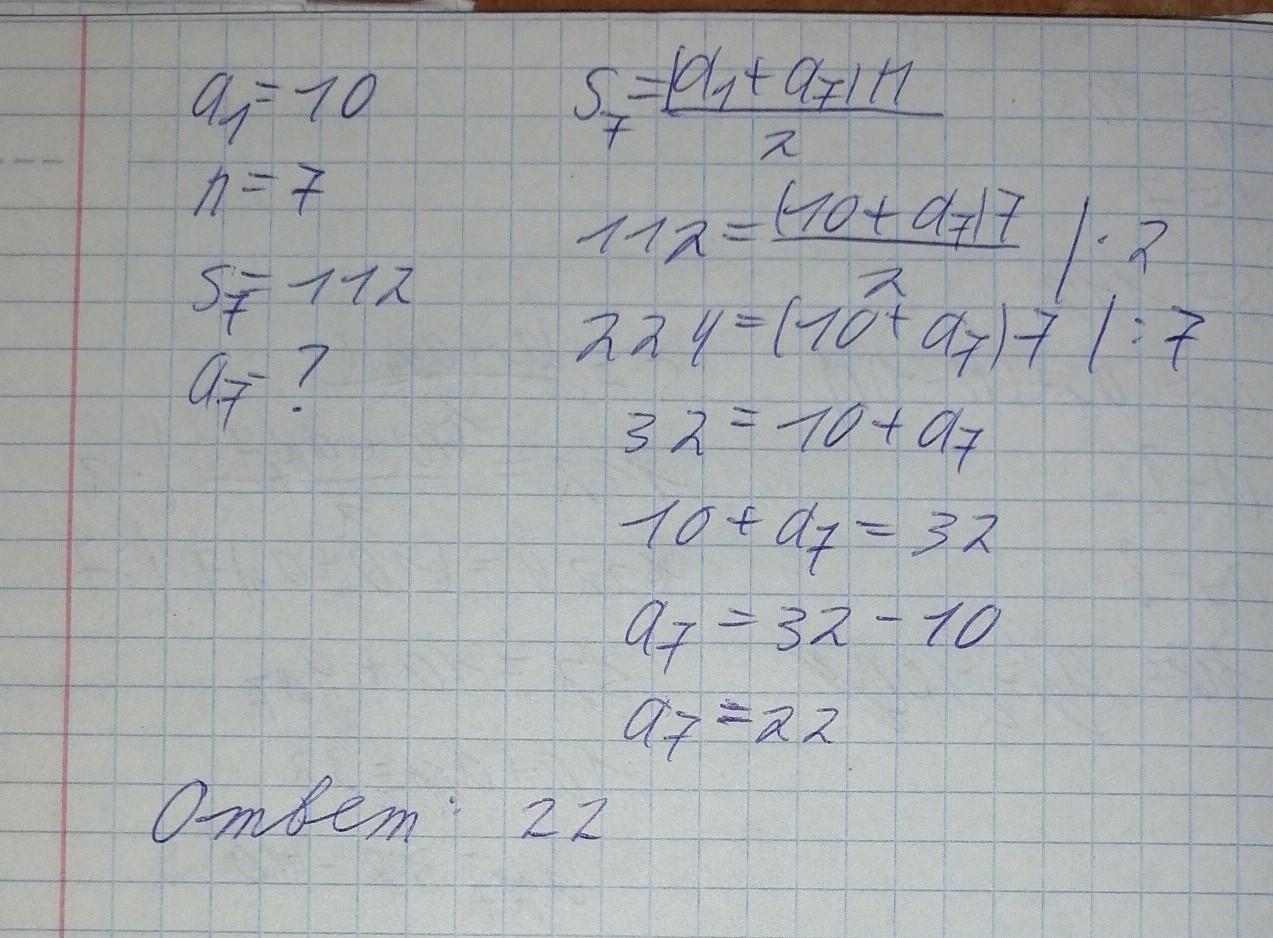 a₁ = 10
n = 7
S₇ = 112
a₇ = ?
S₇ = (a₁ + a₇) n / 2
112 = (10 + a₇) 7 / 2 | · 2
224 = (10 + a₇) 7 | : 7
32 = 10 + a₇
10 + a₇ = 32
a₇ = 32 - 10
a₇ = 22
Ответ: 22